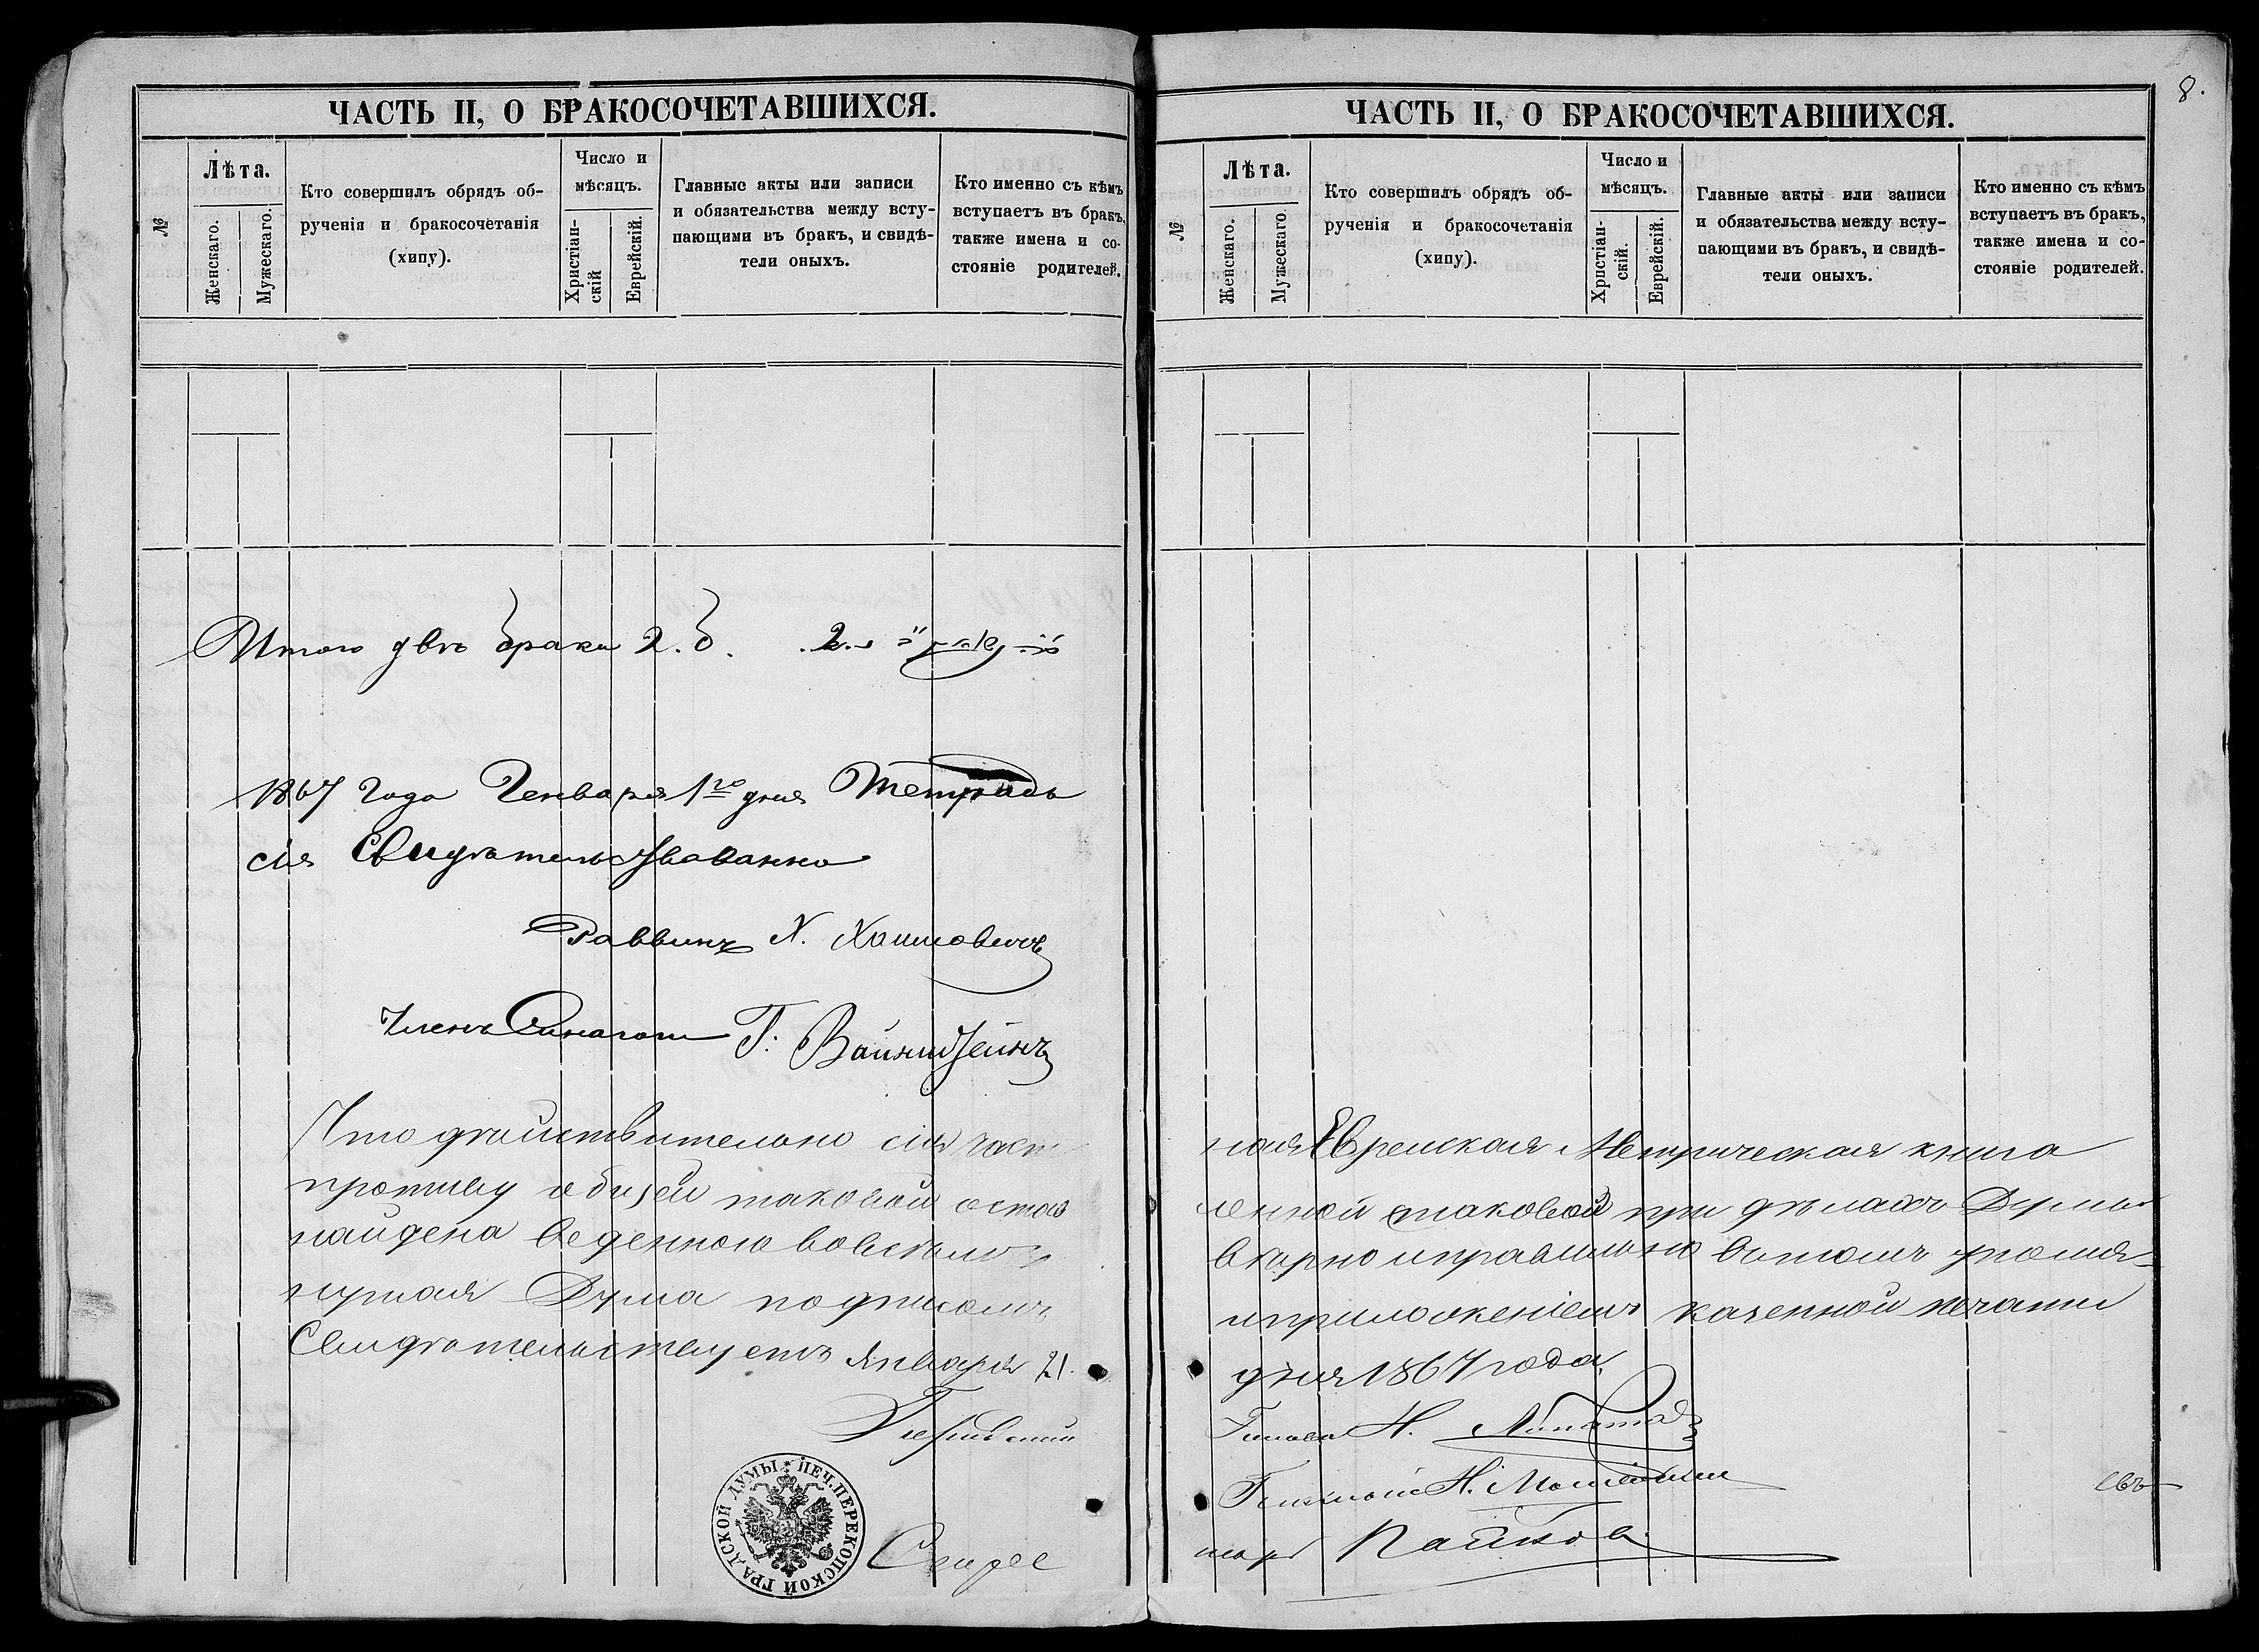 8.
ЧАСТЬ II, О БРАКОСОЧЕТАВШИХСЯ.
№
Лѣта.
Женскаго.
Мужескаго.
Кто совершилъ обрядъ об-
рученія и бракосочетанія
(хипу).
Число и
мѣсяцъ.
Христіан-
скій
Еврейскій.
Главные акты или записи
и обязательства между всту-
пающими въ бракъ, и свидѣ-
тели оныхъ.
Кто именно съ кѣмъ
вступаетъ въ бракъ,
также имена и со-
стояніе родителей.
Итого двѣ брака 2. б. 2.
1867 года Генваря 1го дня Тетрадь
сія Свидѣтельствованна
Раввинъ Х. Хаимовичъ
Членъ Синагоги Г. Вайнштейнъ
Что дѣйствительно сія част
противу общей таковой остав
найдена веденною во всемъ
Дума подписомъ
Свидѣтельствуетъ Января 21.
ПЕЧ. ПЕРЕКОПСКОЙ ГРАДСКОЙ ДУМЫ
ЧАСТЬ II, О БРАКОСОЧЕТАВШИХСЯ.
№
Лѣта.
Женскаго.
Мужескаго.
Кто совершилъ обрядъ об-
рученія и бракосочетанія
(хипу).
Число и
мѣсяцъ.
Христіан-
скій.
Еврейскій.
Главные акты или записи
и обязательства между всту-
пающими въ бракъ, и свидѣ-
тели оныхъ.
Кто именно съ кѣмъ
вступаетъ въ бракъ,
также имена и со-
стояніе родителей.
ная Еврейская Метрическая книга
ленной таковой при дѣлахъ Думы
вѣрно и правильно въ томъ
и приложеніемъ казенной печати
дня 1867 года.
Гласный Н.